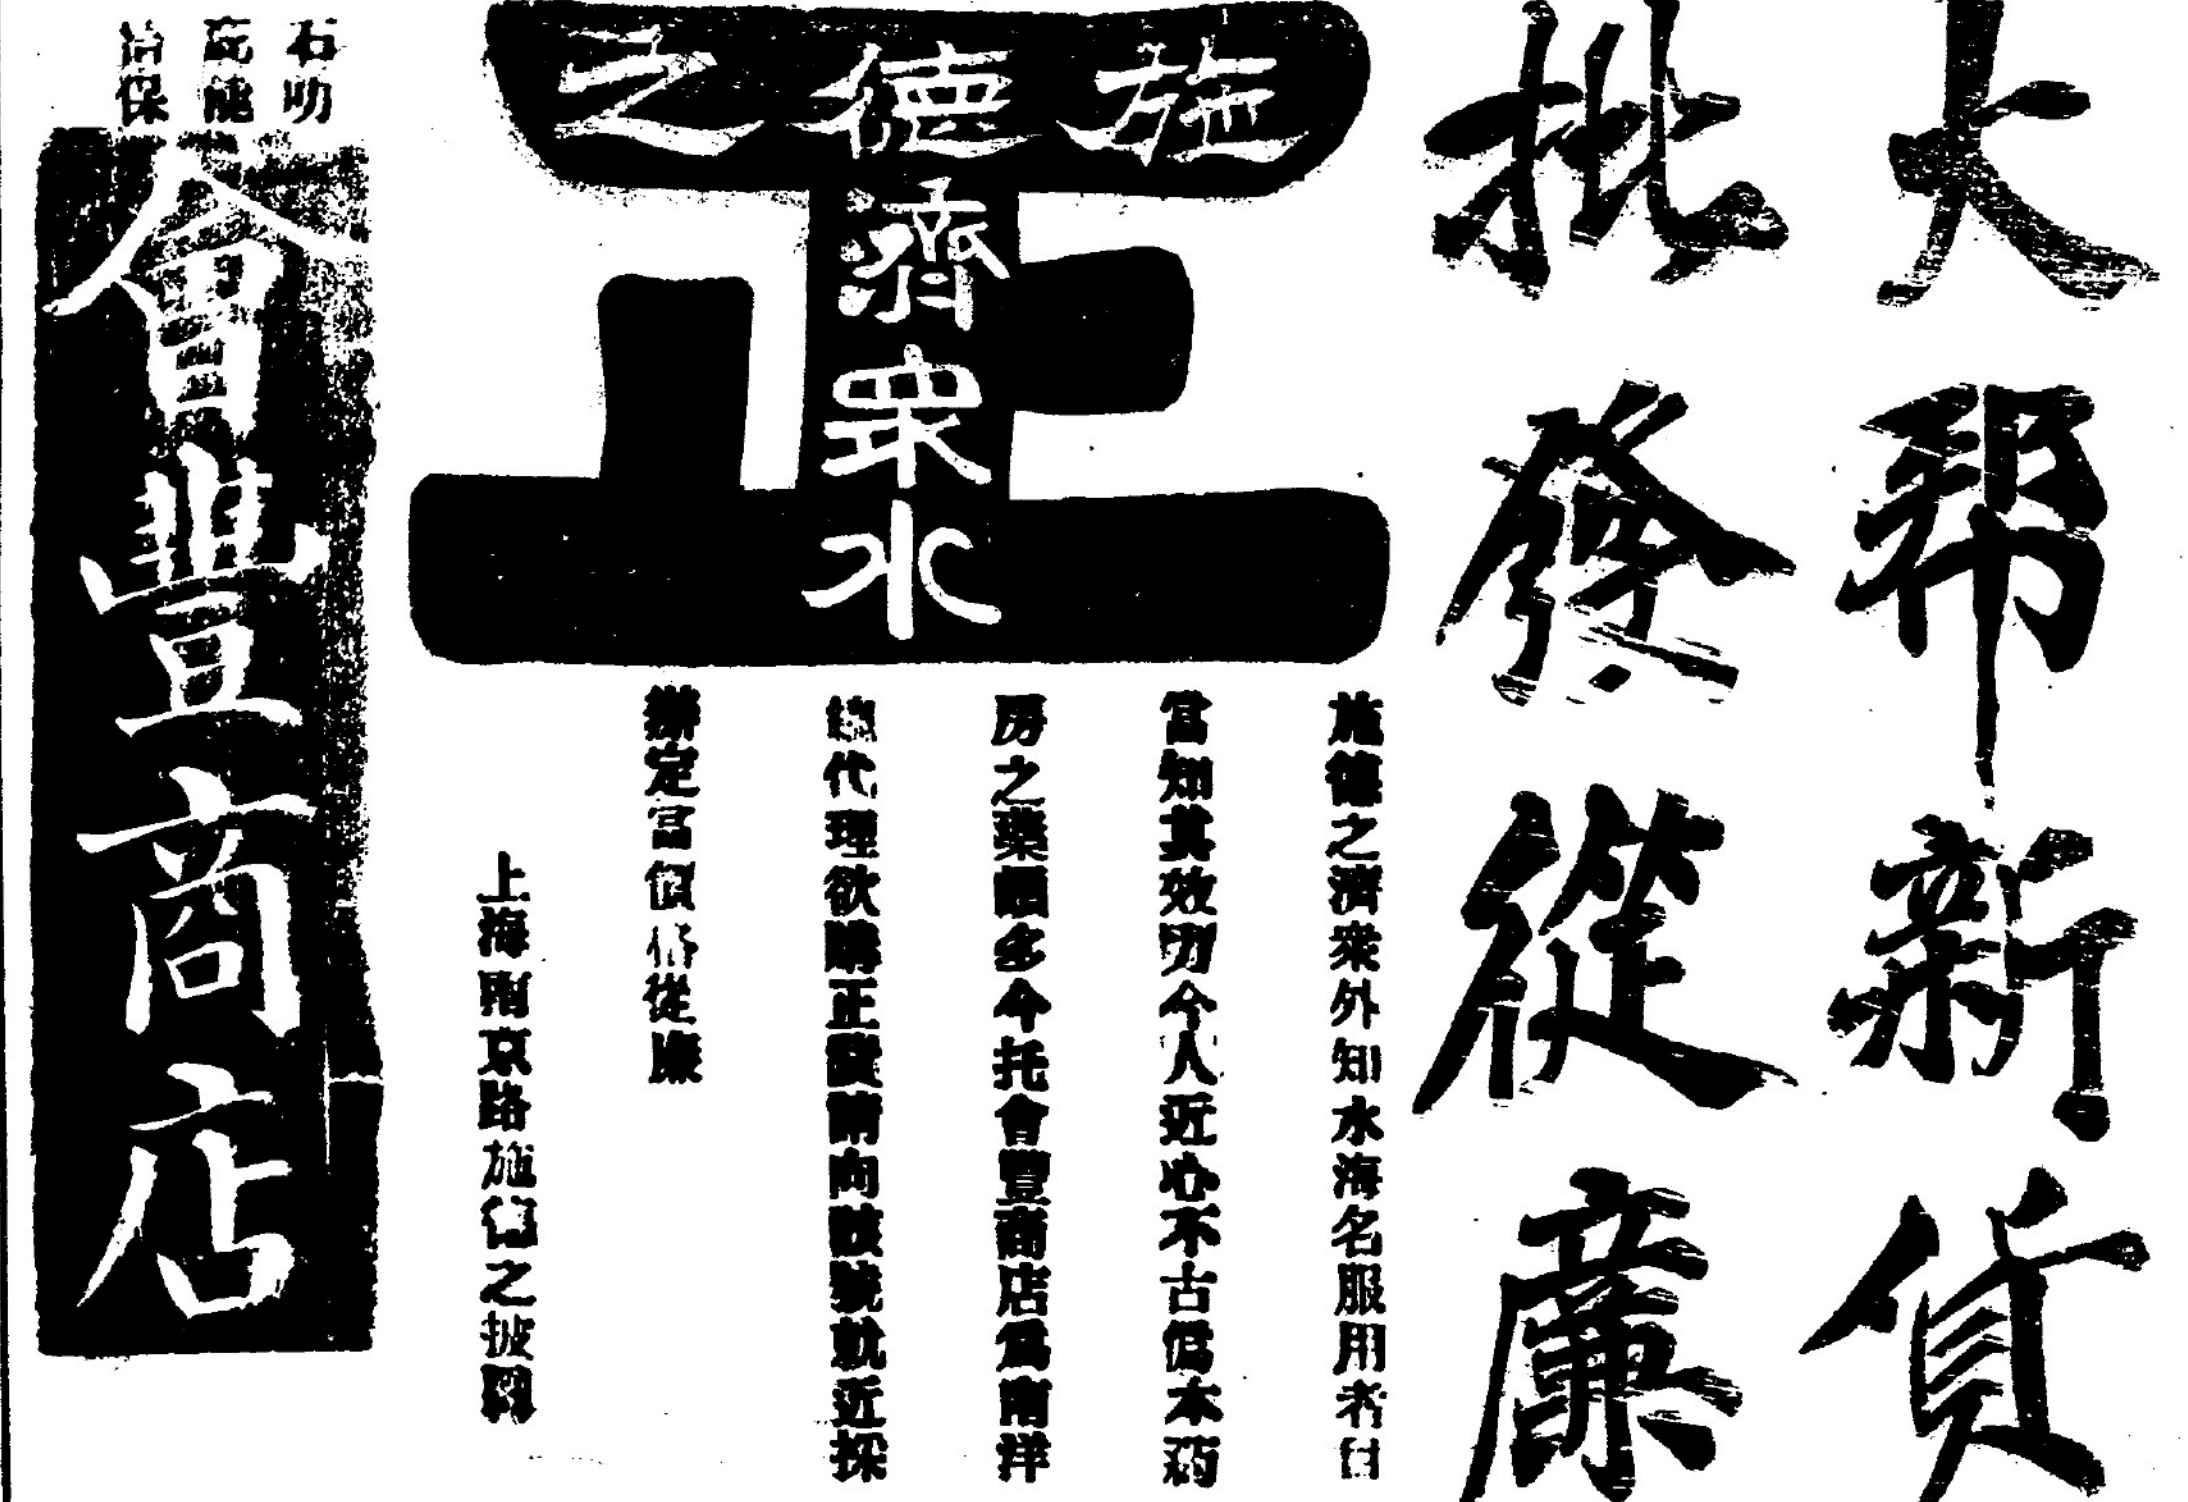 大帮新貨
批發從廉
正
施德之
濟眾水
施德之濟衆外知水海名服用者自
當知其效力今人近心不古僞本葯
房之藥頗多今托會豐商店爲南洋
總代理欲購正發請向該號就近採
辦定當價格從廉
上海南京路施德之披露
石叻
會豐商店